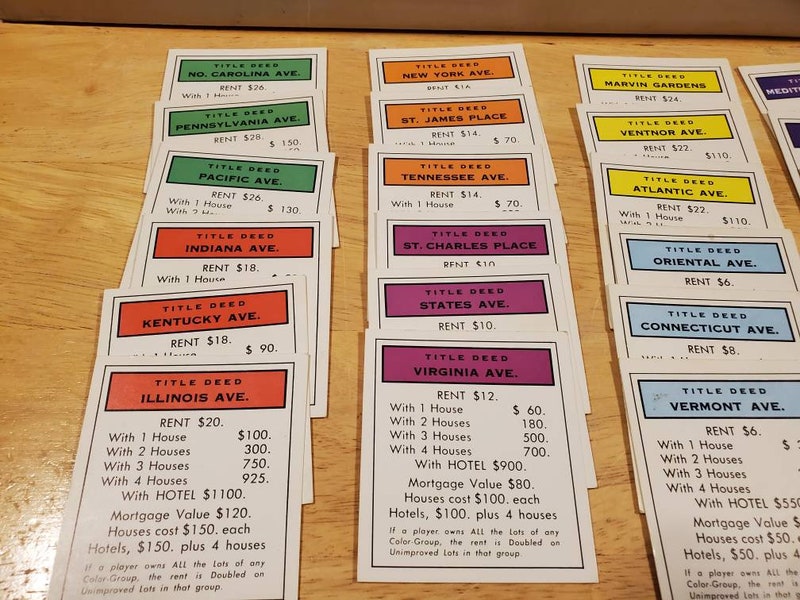 TITLE DEED
NO. CAROLINA AVE.
RENT $26.
With 1 House
TITLE DEED
PENNSYLVANIA AVE.
RENT $28.
$ 150.
TITLE DEED
PACIFIC AVE.
RENT $26.
With 1 House $ 130.
With 2
TITLE DEED
INDIANA AVE.
RENT $18.
With 1 House
TITLE DEED
KENTUCKY AVE.
RENT $18.
With 1 House $ 90.
TITLE DEED
ILLINOIS AVE.
RENT $20.
With 1 House $100.
With 2 Houses 300.
With 3 Houses 750.
With 4 Houses 925.
With HOTEL $1100.
Mortgage Value $120.
Houses cost $150. each
Hotels, $150. plus 4 houses
If a player owns ALL the Lots of any
Color-Group, the rent is Doubled on
Unimproved Lots in that group.
TITLE DEED
NEW YORK AVE.
RENT $16
TITLE DEED
ST. JAMES PLACE
RENT $14.
With 1 House $ 70.
TITLE DEED
TENNESSEE AVE.
RENT $14.
With 1 House $ 70.
TITLE DEED
ST. CHARLES PLACE
RENT $10
TITLE DEED
STATES AVE.
RENT $10.
TITLE DEED
VIRGINIA AVE.
RENT $12.
With 1 House $ 60.
With 2 Houses 180.
With 3 Houses 500.
With 4 Houses 700.
With HOTEL $900.
Mortgage Value $80.
Houses cost $100. each
Hotels, $100. plus 4 houses
If a player owns ALL the Lots of any
Color-Group, the rent is Doubled on
Unimproved Lots in that group.
TITLE DEED
MARVIN GARDENS
RENT $24.
TITLE DEED
VENTNOR AVE.
RENT $22.
$110.
TITLE DEED
ATLANTIC AVE.
RENT $22.
With 1 House $110.
TITLE DEED
ORIENTAL AVE.
RENT $6.
TITLE DEED
CONNECTICUT AVE.
RENT $8.
TITLE DEED
VERMONT AVE.
RENT $6.
With 1 House $
With 2 Houses
With 3 Houses
With 4 Houses
With HOTEL $550
Mortgage Value $
Houses cost $50.
Hotels, $50. plus 4
If a player owns ALL the
Color-Group, the rent is
Unimproved Lots in that
TITL
MEDIT